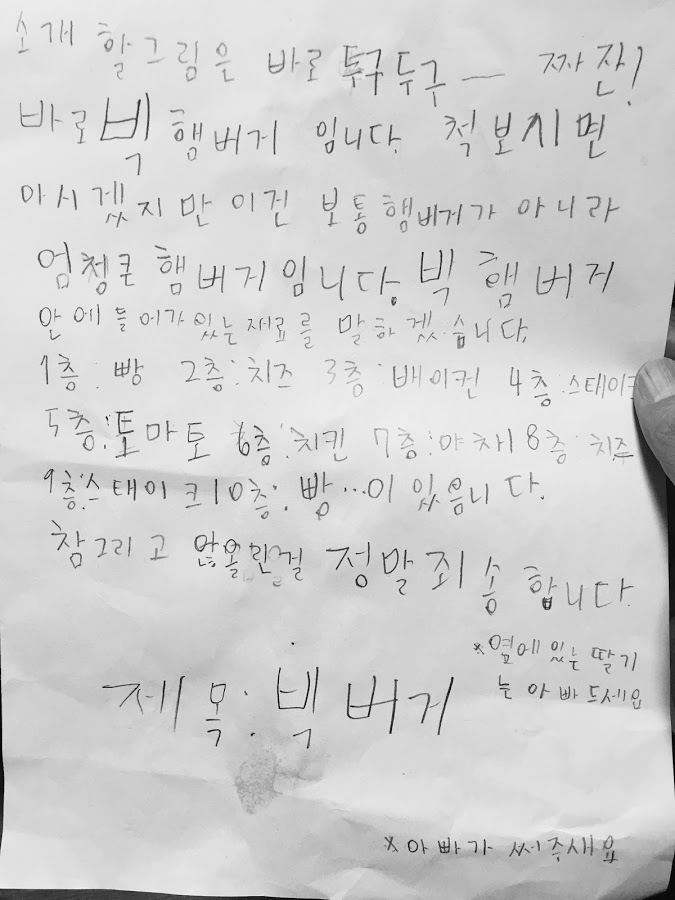 소개 할그림은 바로 두구두구— 짜잔!
바로 빅 햄버거 입니다. 척보시면
아시겠지만 이건 보통햄버거가 아니라
엄청큰 햄버거입니다. 빅 햄버거
안에들어가있는재료를 말하겠습니다.
1층:빵 2층:치즈 3층:배이컨 4층:스테이크
5층:토마토 6층:치킨 7층:야채 8층:치즈
9층:스테이크 10층:빵...이 있음니다.
참그리고 않올린걸 정말죄송합니다.
*옆에있는딸기
는아빠드세요
제목:빅버거
*아빠가 써주새요